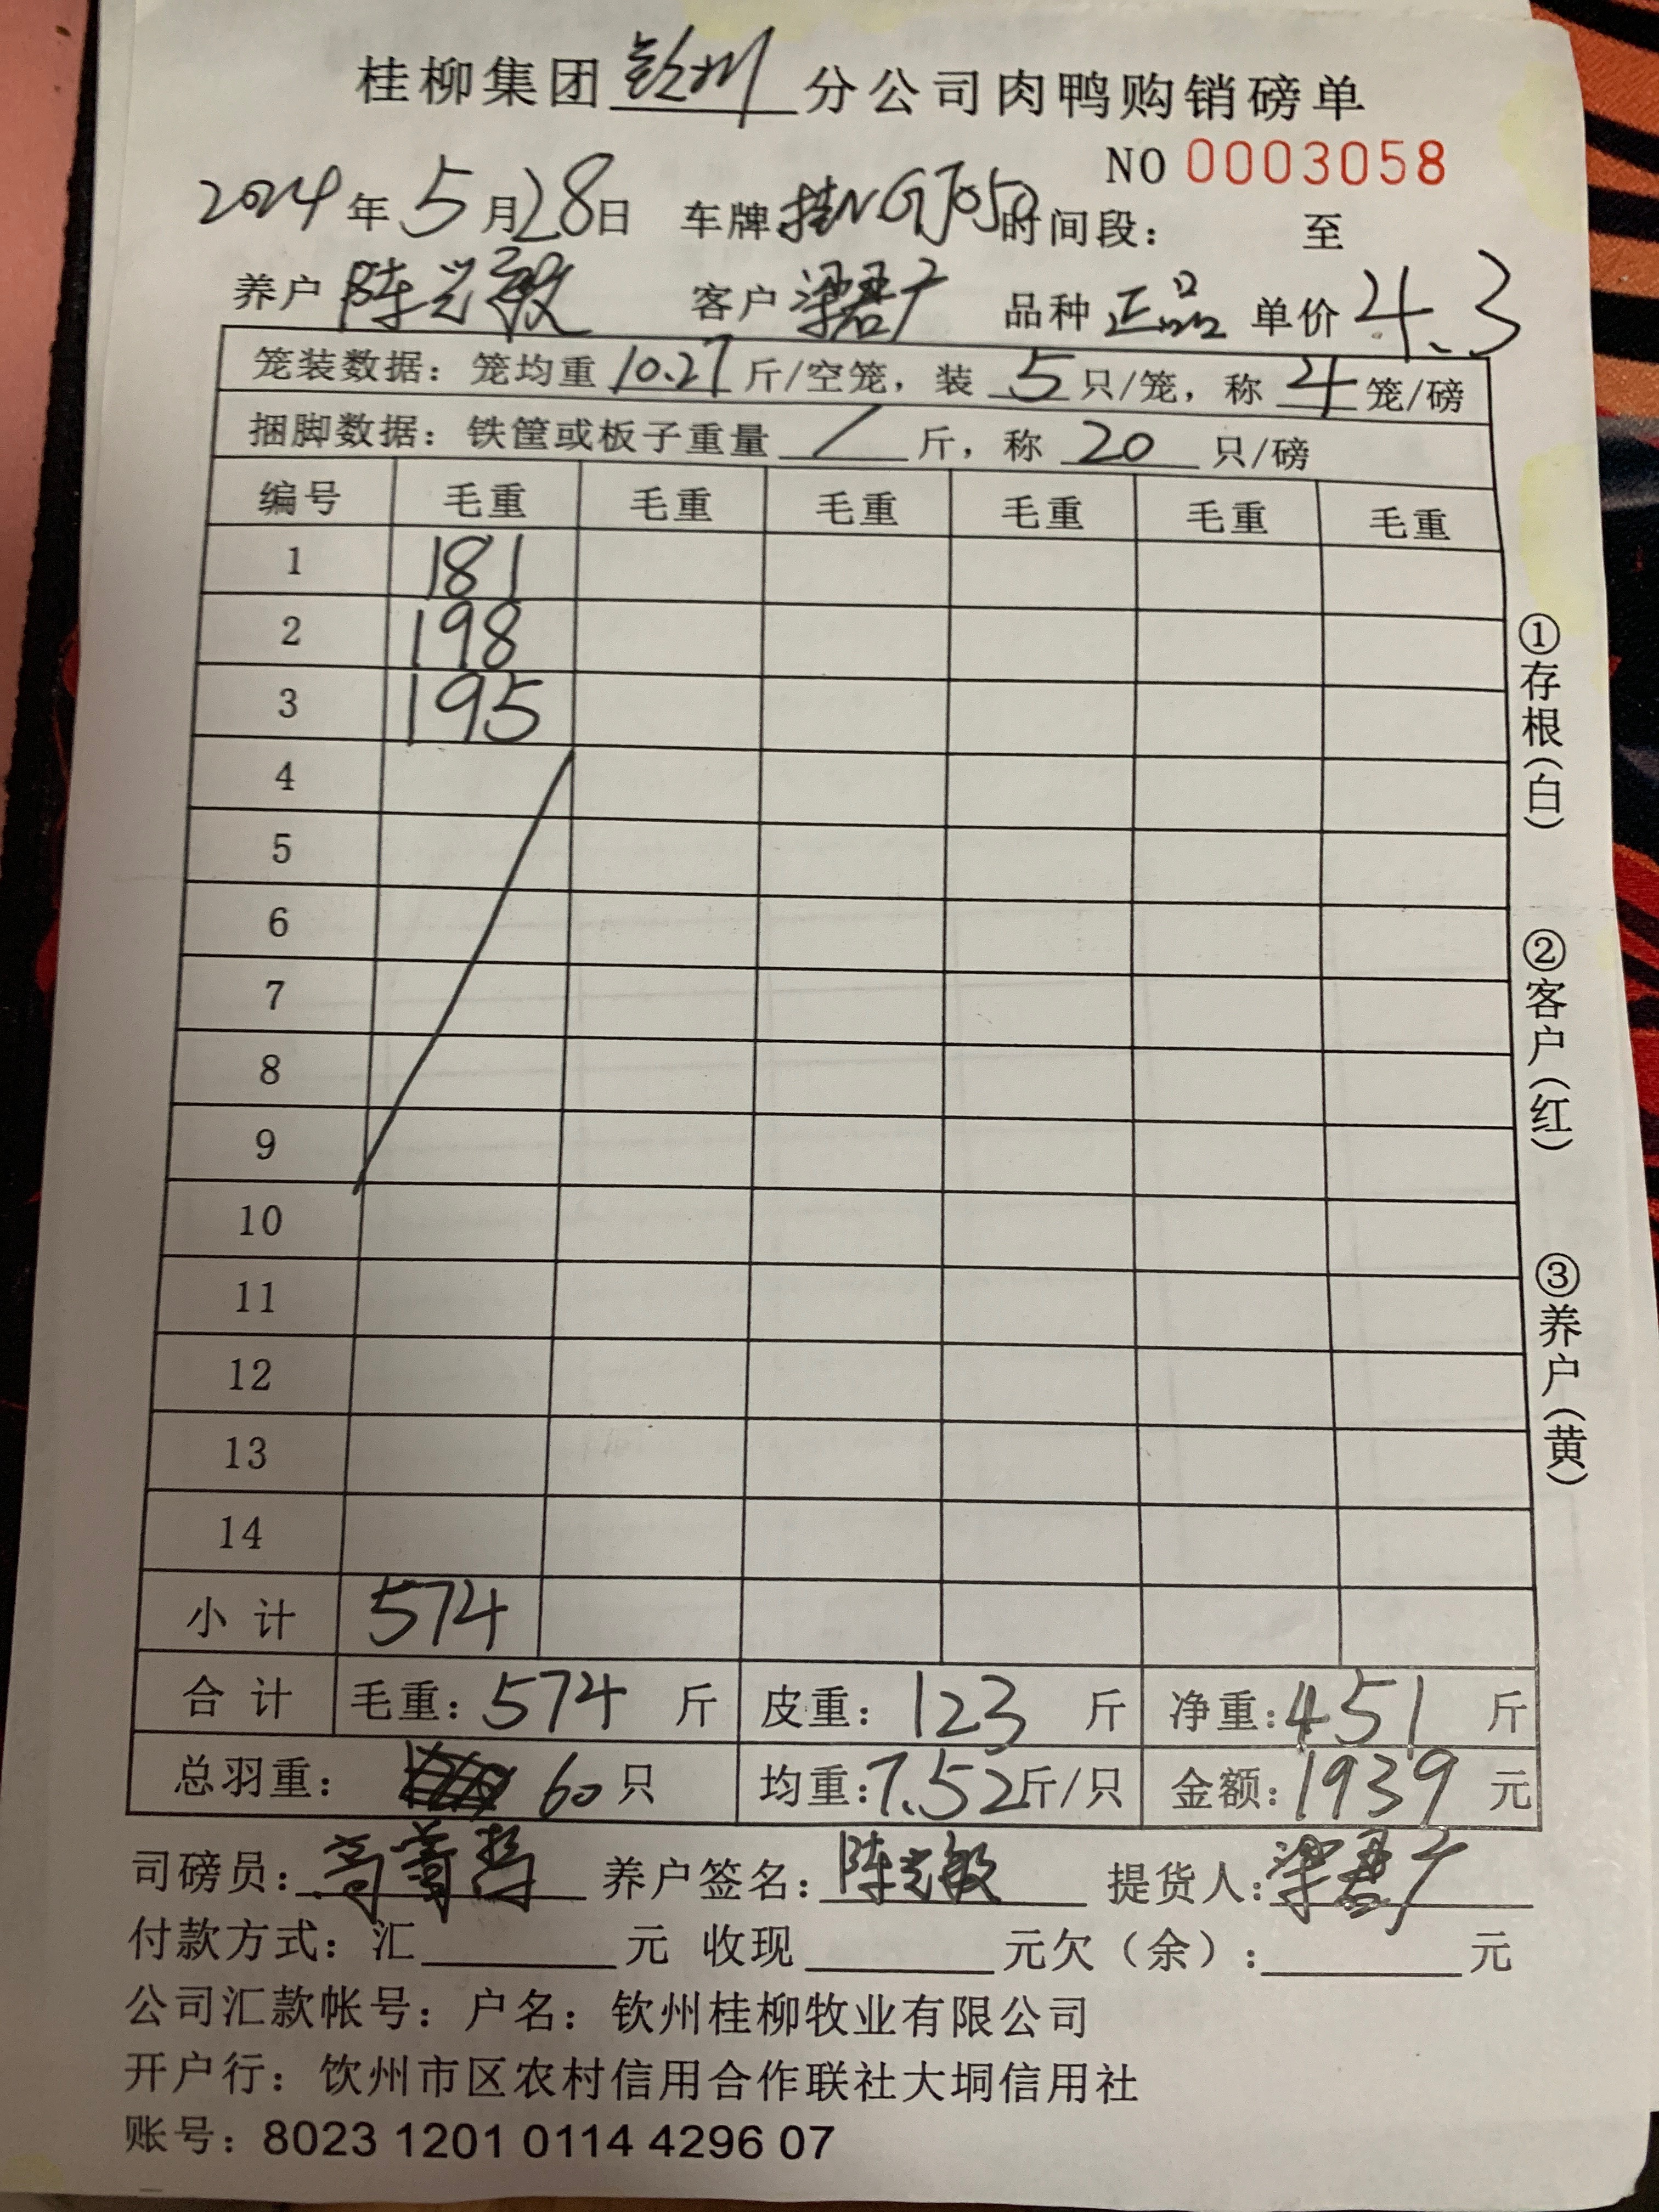 桂柳集团钦州分公司肉鸭购销磅单
NO 0003058
2024年5月28日 车牌桂NGJ050时间段： 至
养户 陈兴敏 客户 梁君广 品种 正品 单价 4.3
笼装数据：笼均重 10.27 斤/空笼，装 5 只/笼，称 4 笼/磅
捆脚数据：铁筐或板子重量 / 斤，称 20 只/磅
编号 毛重 毛重 毛重 毛重 毛重 毛重
1 181
2 198
3 195
4
5
6
7
8
9
10
11
12
13
14
小计 574
合计 毛重：574 斤 皮重：123 斤 净重：451 斤
总羽重： 60只 均重：7.52斤/只 金额：1939 元
司磅员： 养户签名：陈兴敏 提货人：梁君广
付款方式：汇 元 收现 元欠（余）： 元
公司汇款帐号：户名：钦州桂柳牧业有限公司
开户行：饮州市区农村信用合作联社大垌信用社
账号：8023 1201 0114 4296 07
①存根（白）
②客户（红）
③养户（黄）